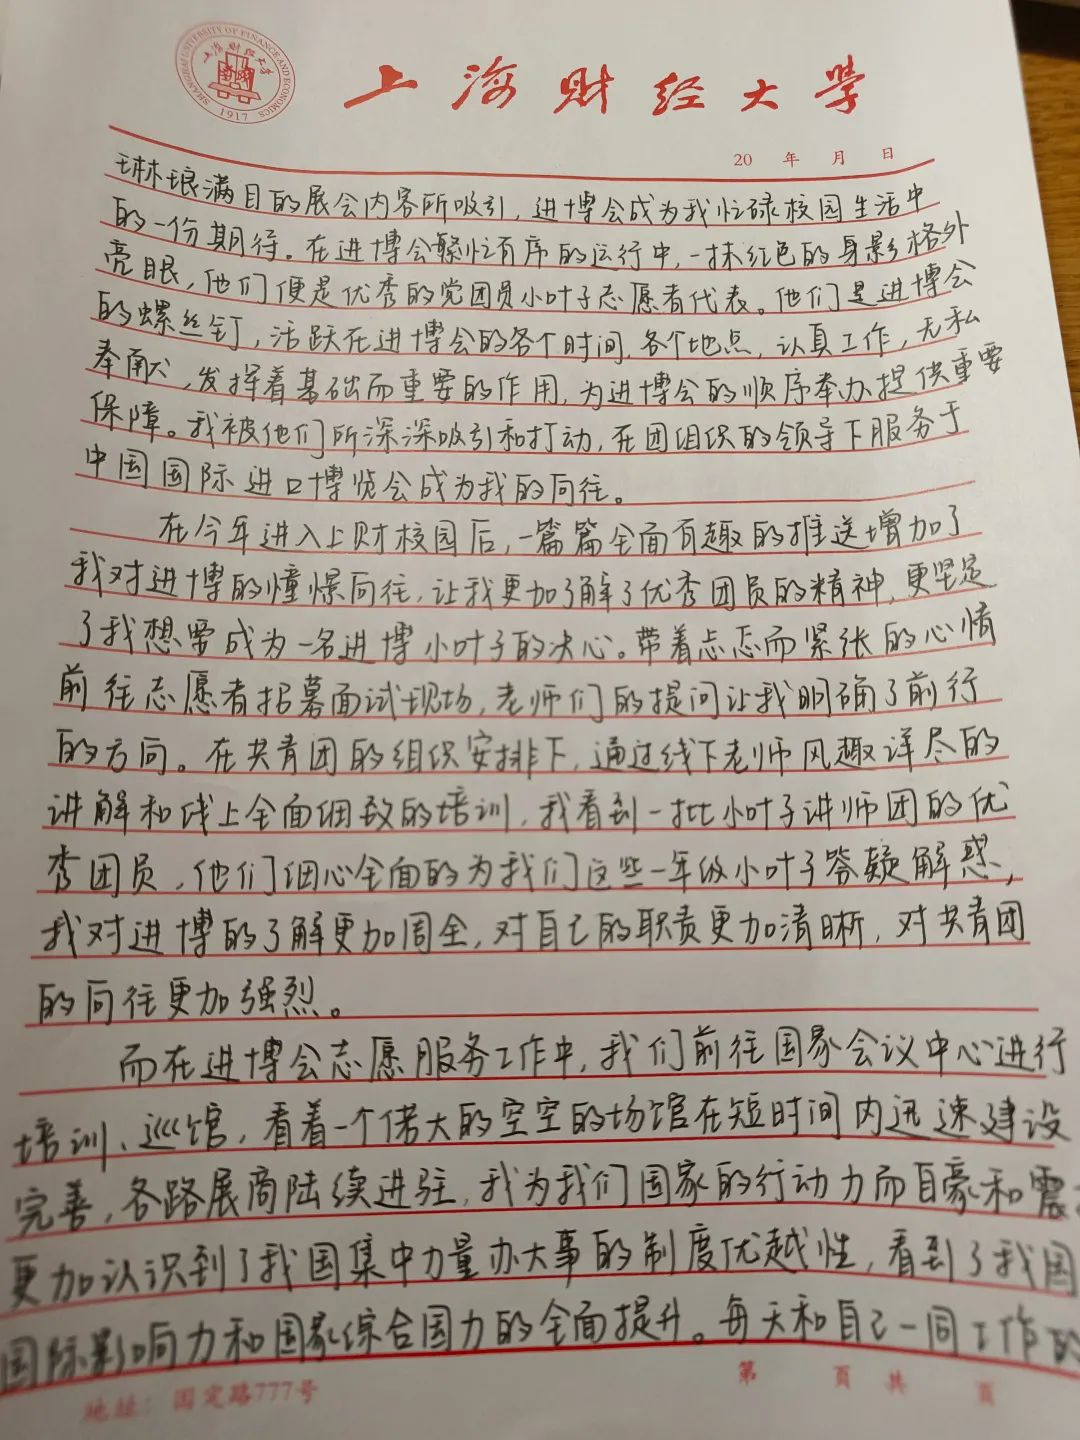 SHANGHAI UNIVERSITY OF FINANCE AND ECONOMICS
上海财经大学
1917
上海财经大学
20 年 月 日
琳琅满目的展会内容所吸引，进博会成为我忙碌校园生活中
的一份期待。在进博会繁忙有序的运行中，一抹红色的身影格外
亮眼，他们便是优秀的党团员小叶子志愿者代表。他们是进博会
的螺丝钉，活跃在进博会的各个时间、各个地点，认真工作，无私
奉献，发挥着基础而重要的作用，为进博会的顺序举办提供重要
保障。我被他们所深深吸引和打动，在团组织的领导下服务于
中国国际进口博览会成为我的向往。
在今年进入上财校园后，一篇篇全面有趣的推送增加了
我对进博的憧憬向往，让我更加了解了优秀团员的精神，更坚定
了我想要成为一名进博小叶子的决心。带着忐忑而紧张的心情
前往志愿者招募面试现场，老师们的提问让我明确了前行
的方向。在共青团的组织安排下，通过线下老师风趣详尽的
讲解和线上全面细致的培训，我看到一批小叶子讲师团的优
秀团员，他们细心全面的为我们这些一年级小叶子答疑解惑，
我对进博的了解更加周全，对自己的职责更加清晰，对共青团
的向往更加强烈。
而在进博会志愿服务工作中，我们前往国家会议中心进行
培训、巡馆，看着一个偌大的空空的场馆在短时间内迅速建设
完善，各路展商陆续进驻，我为我们国家的行动力而自豪和震
更加认识到了我国集中力量办大事的制度优越性，看到了我国
国际影响力和国家综合国力的全面提升。每天和自己一同工作的
地址：国定路777号
第 頁 共 頁